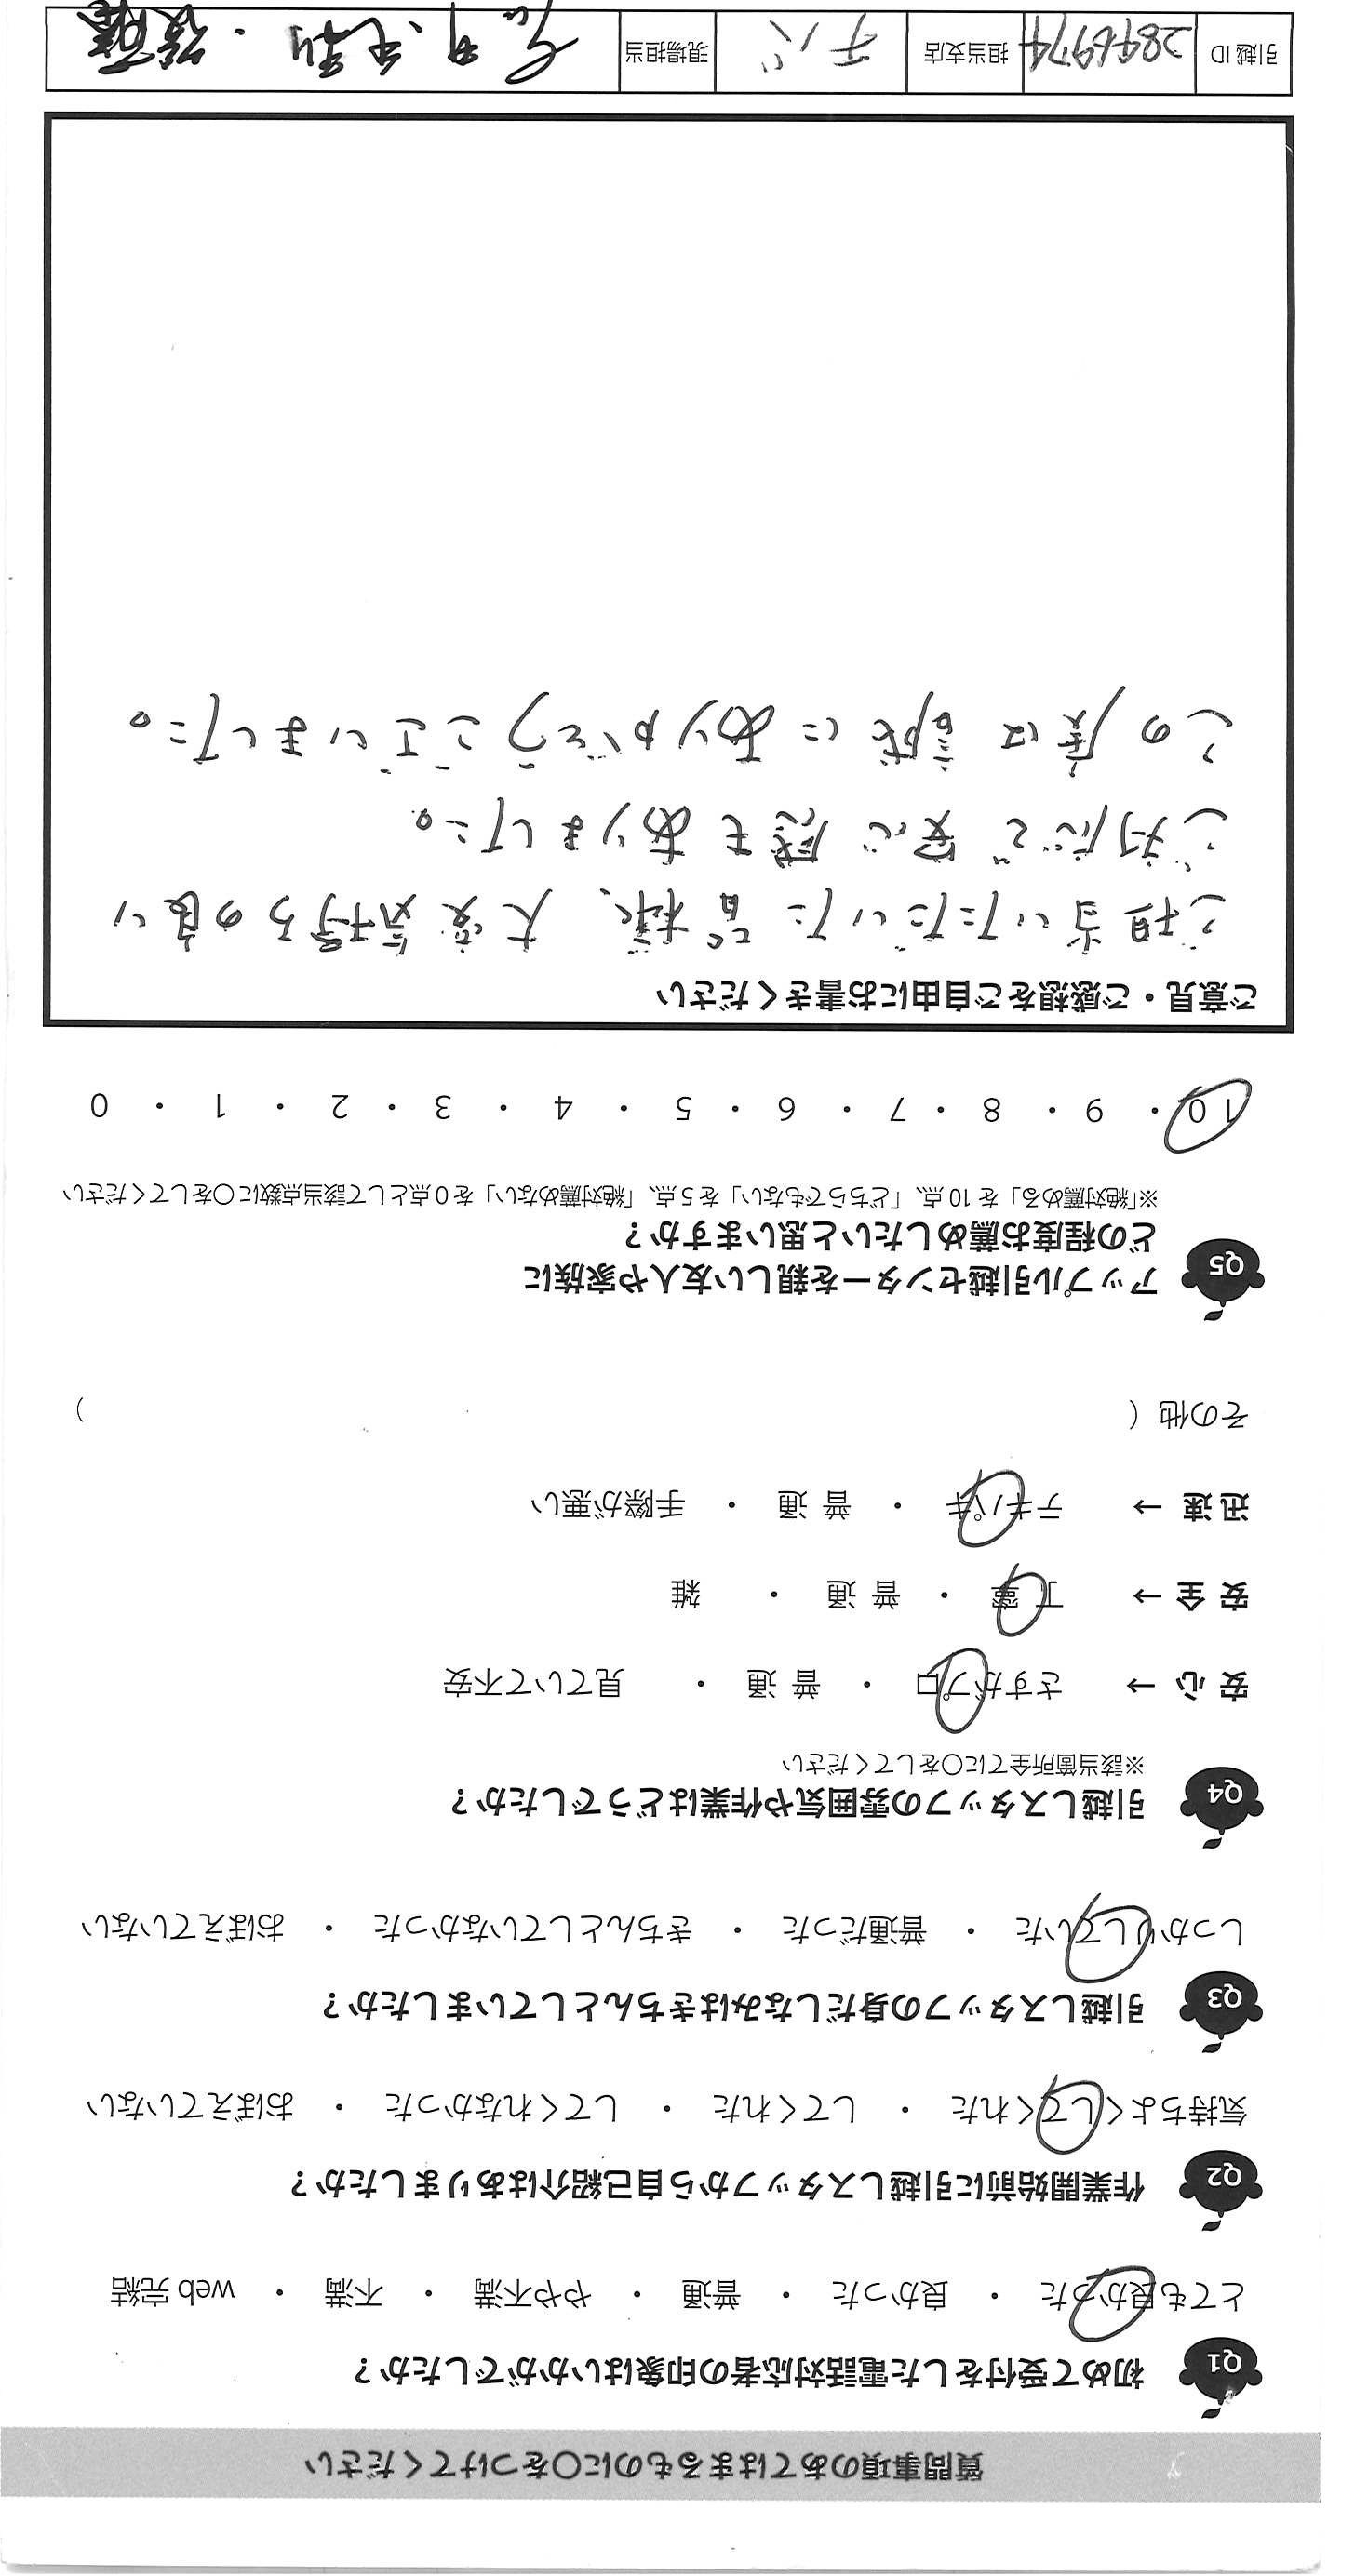 質問事項のあてはまるものに〇をつけてください
Q1 初めて受付をした電話対応者の印象はいかがでしたか？
とても良かった ・ 良かった ・ 普通 ・ やや不満 ・ 不満 ・ web 完結
Q2 作業開始前に引越しスタッフから自己紹介はありましたか？
気持ちよくしてくれた ・ してくれた ・ してくれなかった ・ おぼえていない
Q3 引越しスタッフの身だしなみはきちんとしていましたか？
しっかりしていた ・ 普通だった ・ きちんとしていなかった ・ おぼえていない
Q4 引越しスタッフの雰囲気や作業はどうでしたか？
※該当箇所全てに〇をしてください
安 心 → さすがプロ ・ 普 通 ・ 見ていて不安
安 全 → 丁 寧 ・ 普 通 ・ 雑
迅 速 → テキパキ ・ 普 通 ・ 手際が悪い
その他（ ）
Q5 アップル引越センターを親しい友人や家族に
どの程度お薦めしたいと思いますか？
※「絶対薦める」を 10 点、「どちらでもない」を 5 点、「絶対薦めない」を 0 点として該当点数に〇をしてください
10 ・ 9 ・ 8 ・ 7 ・ 6 ・ 5 ・ 4 ・ 3 ・ 2 ・ 1 ・ 0
ご意見・ご感想をご自由にお書きください
ご担当いただいた皆様、大変気持ちの良い
ご対応で安心感もありました。
この度は誠にありがとうございました。
引越 ID 2846974 担当支店 チバ 現場担当